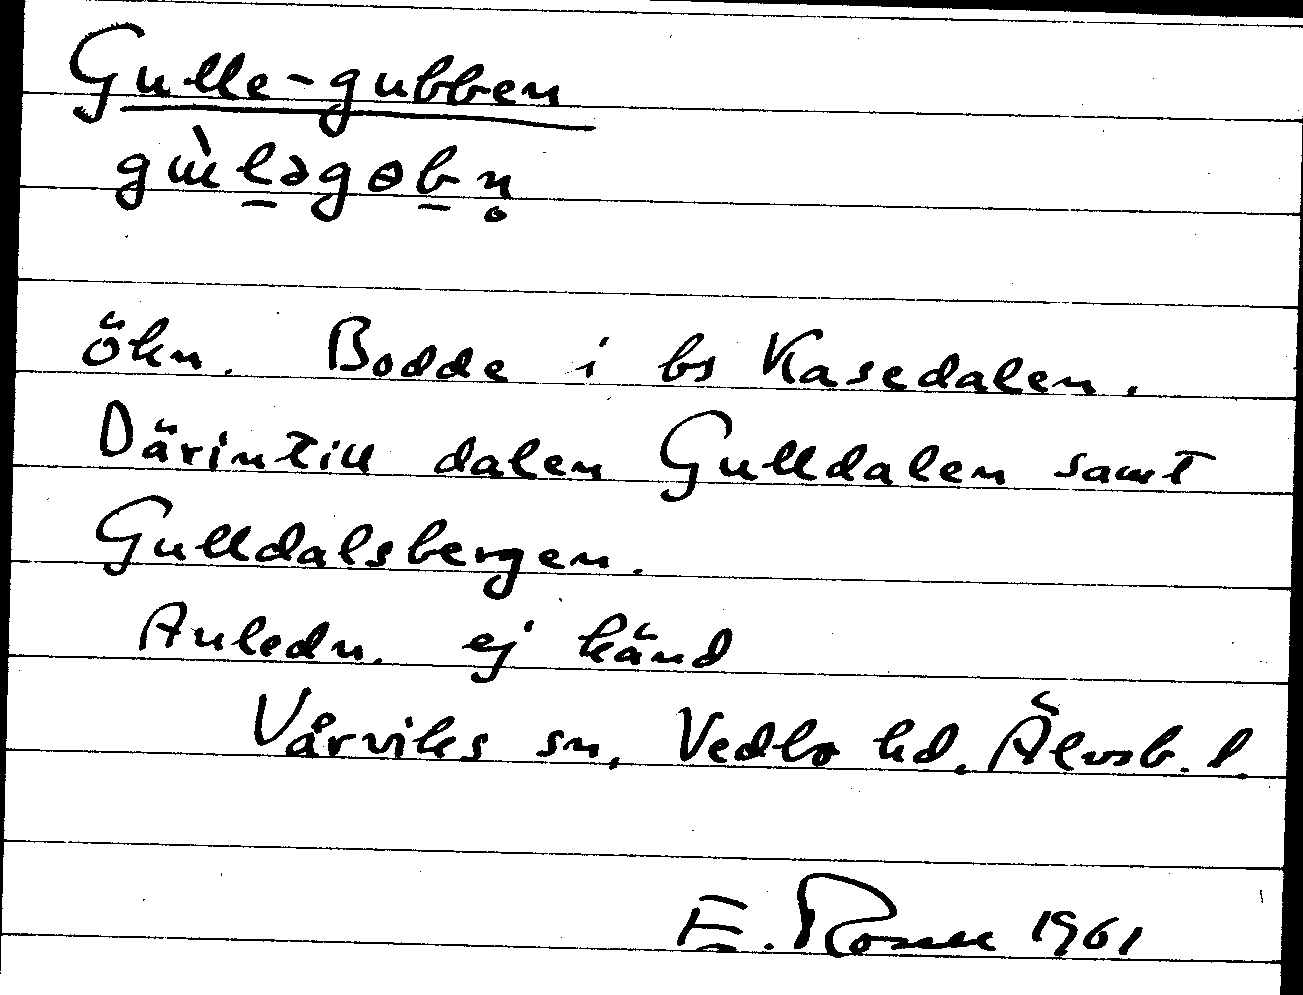 Gulle-gubben
gɯ̀l̠əgɵb̠n̥
ökn. Bodde i bs Kasedalen.
Därintill dalen Gulldalen samt
Gulldalsbergen.
Anledn. ej känd
Vårviks sn, Vedbo hd. Älvsb. l.
E. Rosell 1961